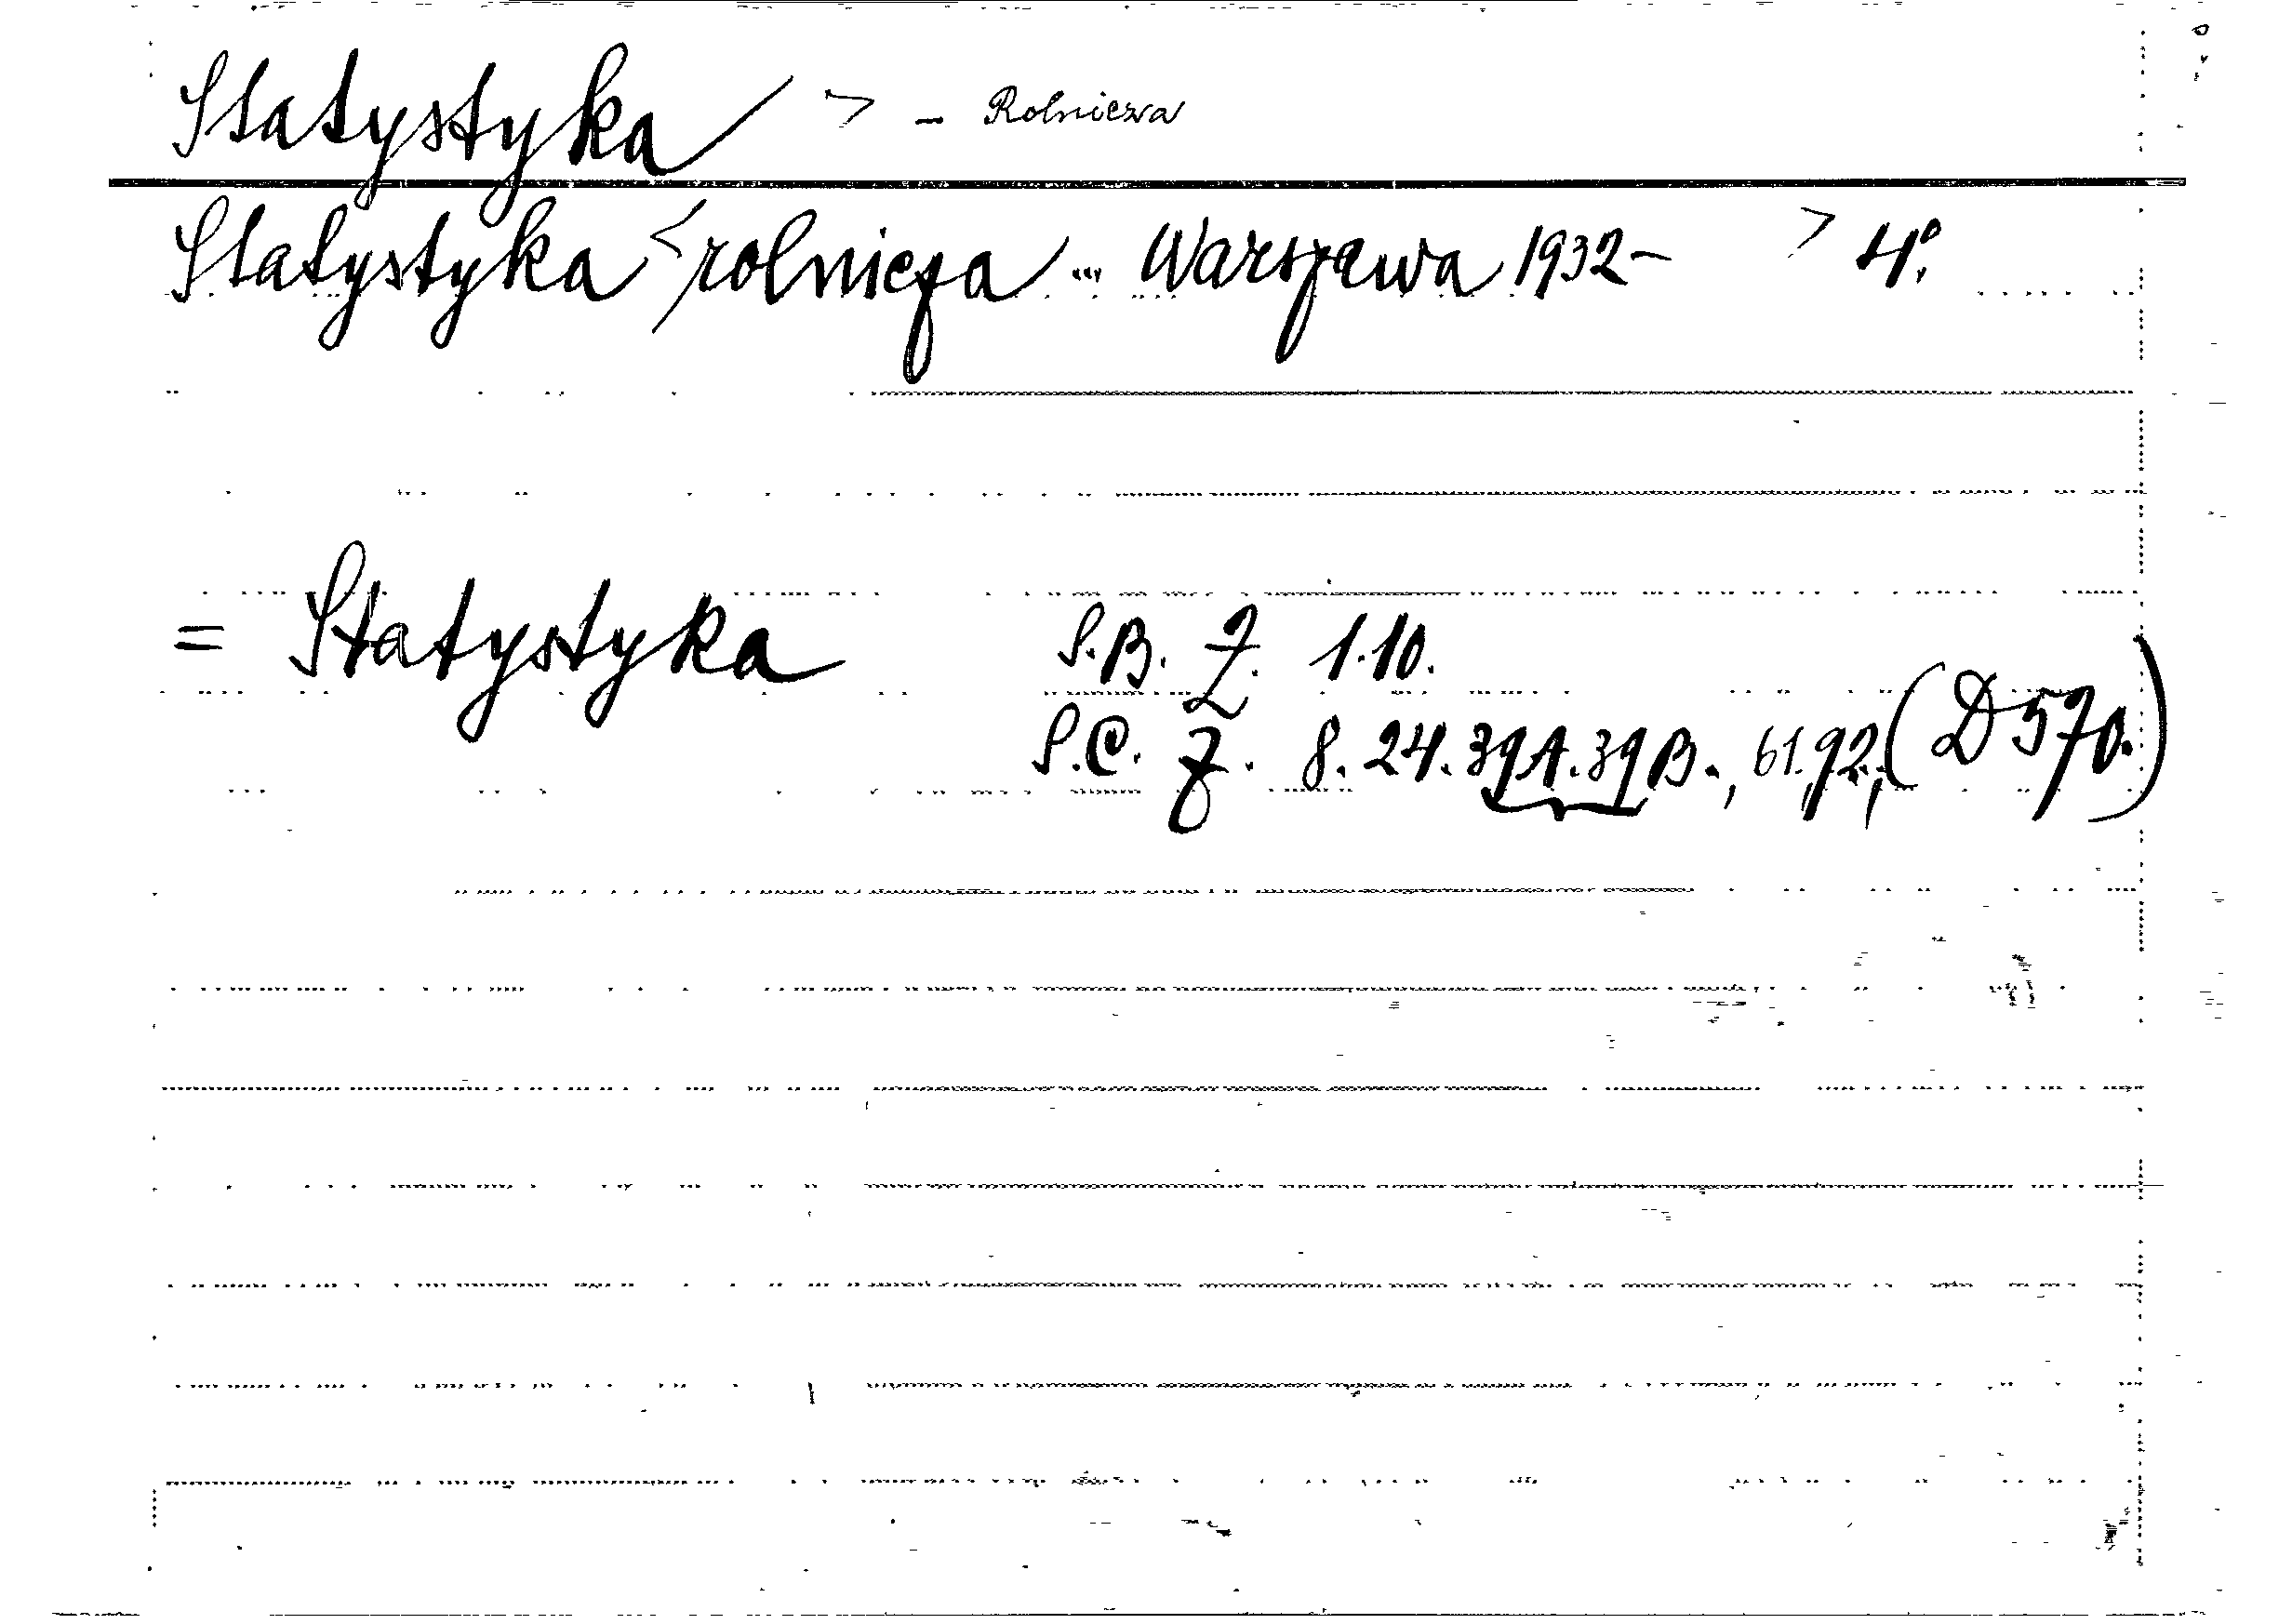 Statystyka > – Rolnicza
Statystyka < rolnicza ... Warszawa 1932– > 4°.
= Statystyka S.B. Z. 1.10.
S.C. Z. 8.24.39A.39B., 61.92, (D570.)